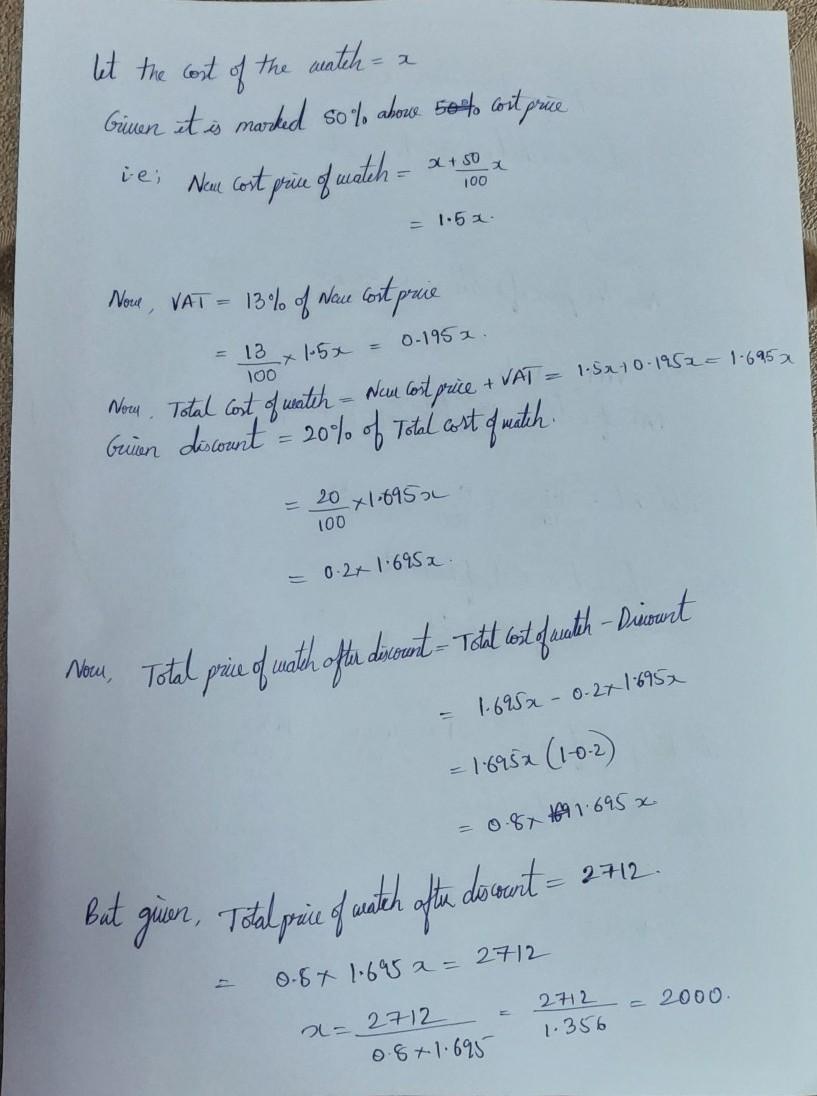 let the cost of the watch = x
Given it is marked 50% above 50% cost price
i.e; New cost price of watch = x + 50/100 x
= 1.5x.
Now, VAT = 13% of New cost price
= 13/100 × 1.5x = 0.195x.
Now, Total cost of watch = New cost price + VAT = 1.5x + 0.195x = 1.695x
Given discount = 20% of Total cost of watch.
= 20/100 × 1.695x
= 0.2 × 1.695x.
Now, Total price of watch after discount = Total cost of watch - Discount
= 1.695x - 0.2 × 1.695x
= 1.695x (1-0.2)
= 0.8 × 1.695x.
But given, Total price of watch after discount = 2712.
= 0.8 × 1.695x = 2712
x = 2712/0.8 × 1.695 = 2712/1.356 = 2000.